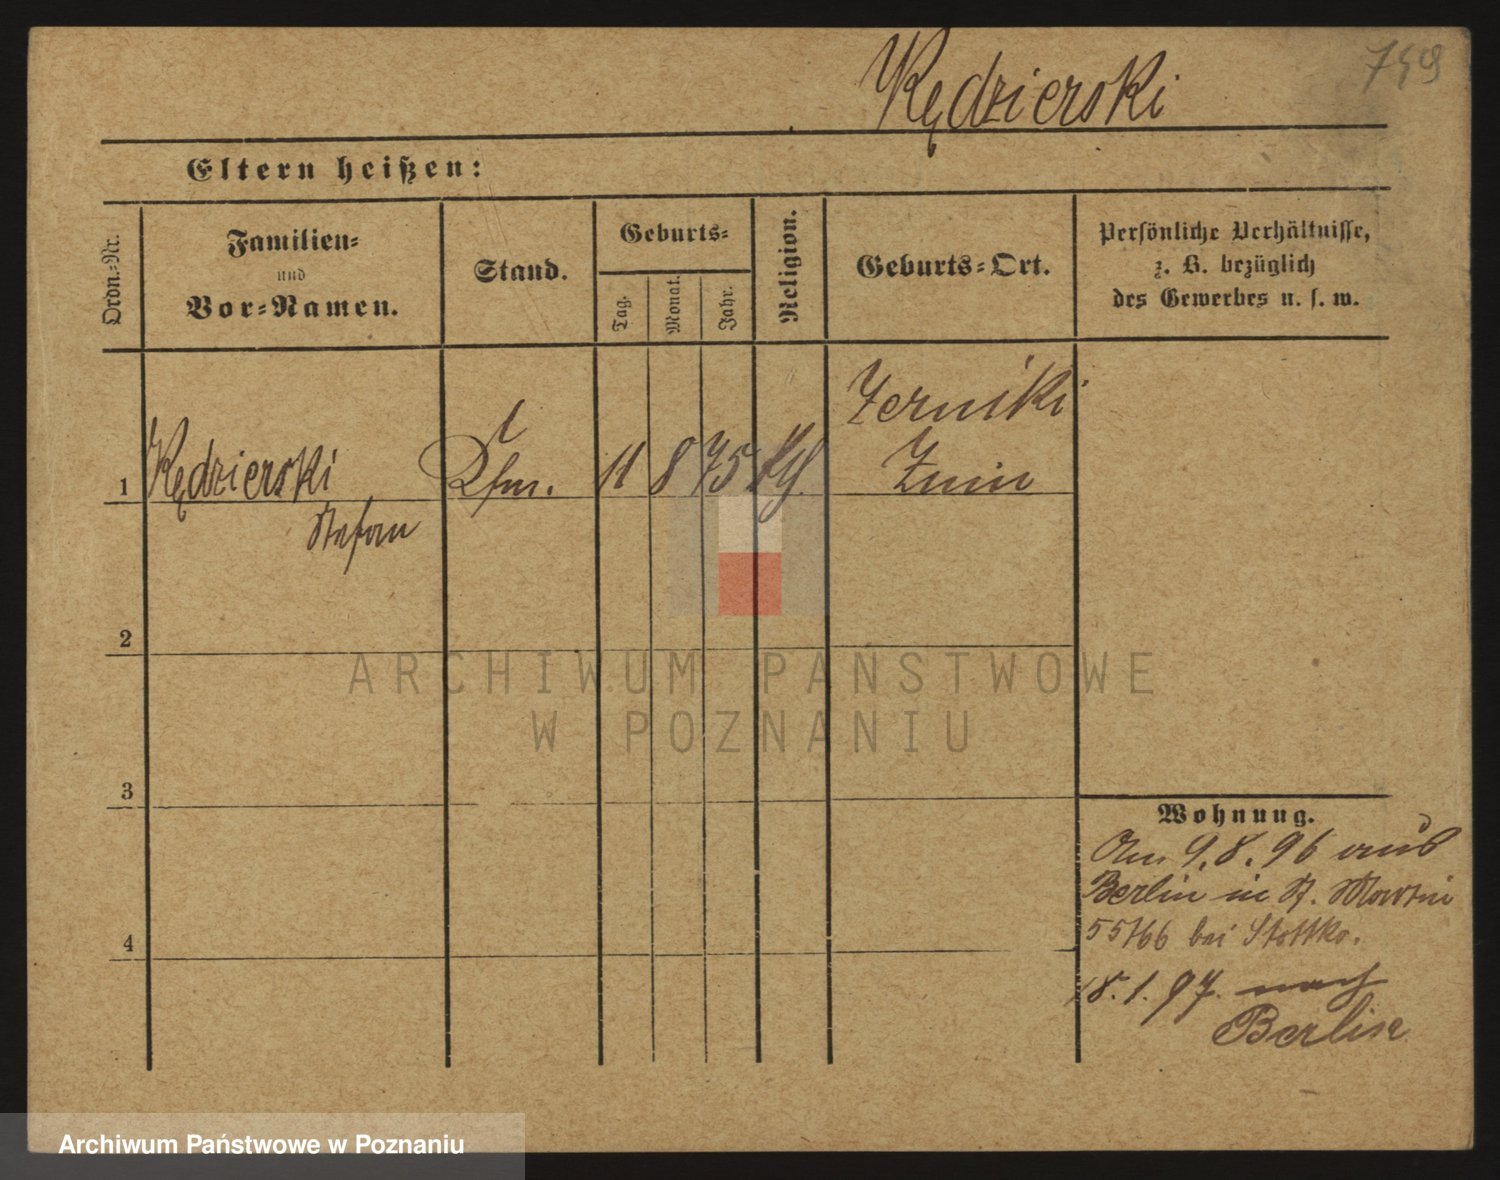 759
Kędzierski
Eltern heißen:
Ordn.-Nr.
Familien-
und
Vor-Namen.
Stand.
Geburts-
Tag.
Monat.
Jahr.
Religion.
Geburts-Ort.
Persönliche Verhältnisse,
z. B. bezüglich
des Gewerbes u. s. w.
Zerniki
1 Kędzierski Kfm. 11 8 75 kth. Znin
Stefan
2
ARCHIWUM PAŃSTWOWE
W POZNANIU
3
Wohnung.
Am 9.8.96 aus
Berlin in St. Martin
55/66 bei
4
18.1.97. nach
Berlin
Archiwum Państwowe w Poznaniu